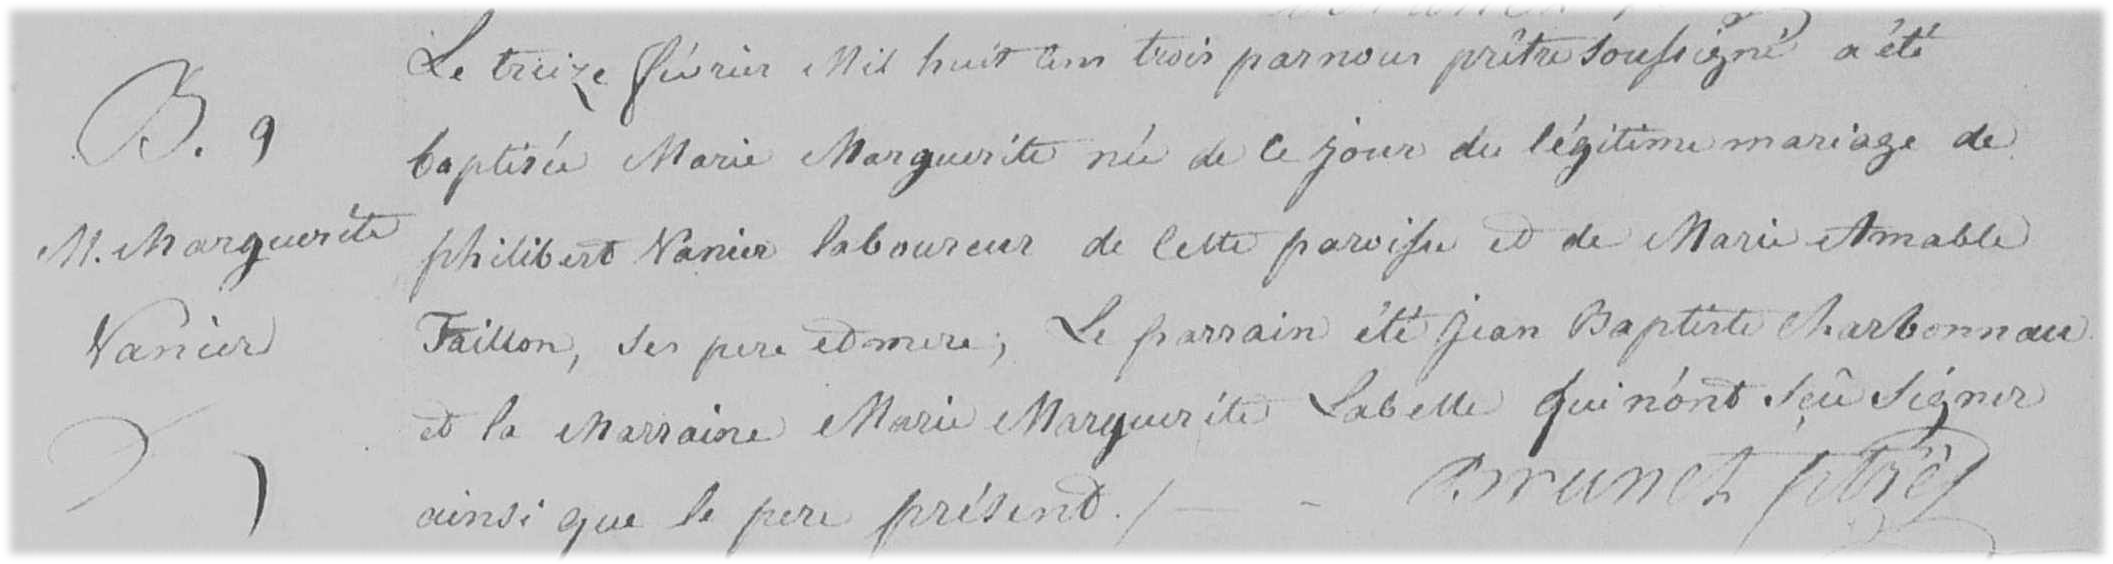 B. 9
M. Marguerite
Vanier
Le treize février Mil huit Cent trois par nous prêtre soussigné a été
baptisée Marie Marguerite née de ce jour du légitime mariage de
philibert Vanier laboureur de cette paroisse et de Marie Amable
Taillon, ses pere et mere; Le parrain été Jean Baptiste Charbonnau
et la Marraine Marie Marguerite Labelle qui n'ont sçû signer
ainsi que le pere présent. /
Brunet ptre